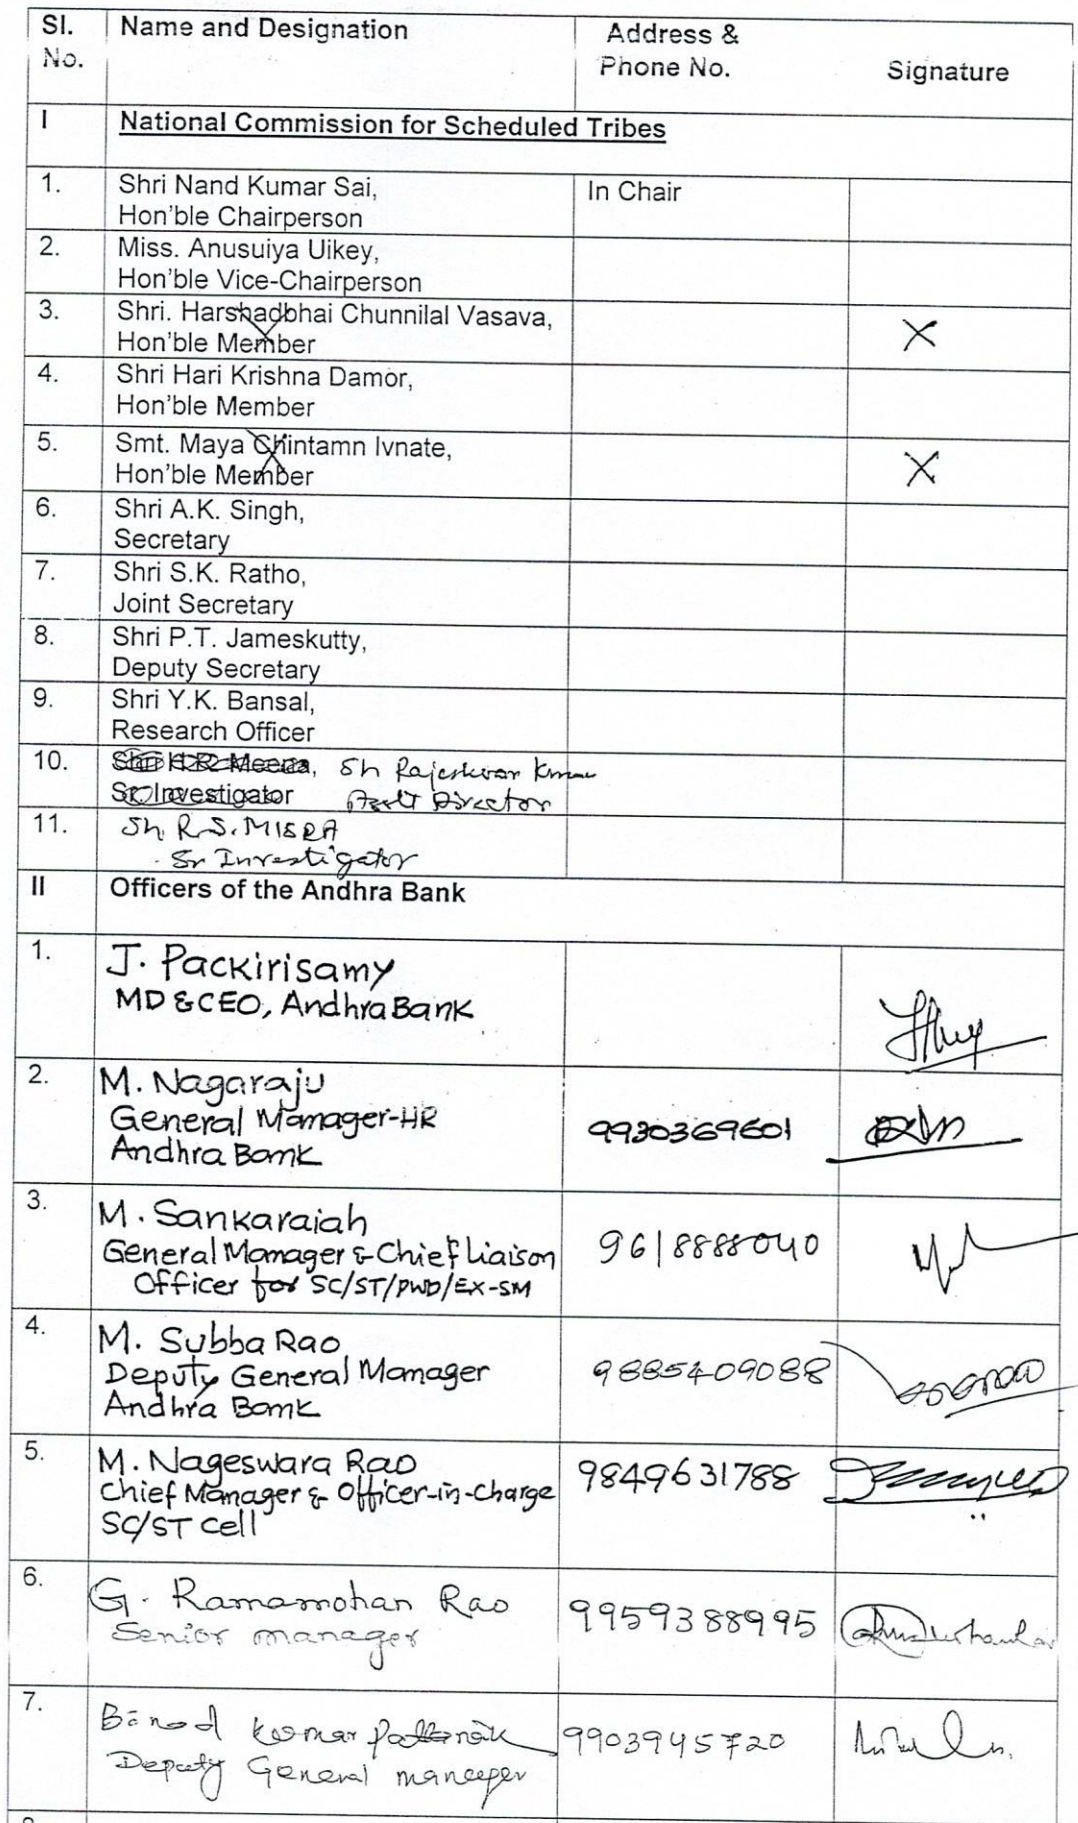 Sl. No. Name and Designation Address & Phone No. Signature
I National Commission for Scheduled Tribes
1. Shri Nand Kumar Sai, In Chair
Hon'ble Chairperson
2. Miss. Anusuiya Uikey,
Hon'ble Vice-Chairperson
3. Shri. Harshadbhai Chunnilal Vasava, X
Hon'ble Member
4. Shri Hari Krishna Damor,
Hon'ble Member
5. Smt. Maya Chintamn Ivnate, X
Hon'ble Member
6. Shri A.K. Singh,
Secretary
7. Shri S.K. Ratho,
Joint Secretary
8. Shri P.T. Jameskutty,
Deputy Secretary
9. Shri Y.K. Bansal,
Research Officer
10. Shri H.R. Meena, Sh Rajeshwar Kumar
Sr. Investigator Director
11. Sh R.S. MISRA
Sr Investigator
II Officers of the Andhra Bank
1. J. Packirisamy
MD & CEO, Andhra Bank
2. M. Nagaraju
General Manager-HR 9930369601
Andhra Bank
3. M. Sankaraiah
General Manager & Chief Liaison 9618888040
Officer for SC/ST/PWD/EX-SM
4. M. Subba Rao
Deputy General Manager 9885409088
Andhra Bank
5. M. Nageswara Rao 9849631788
Chief Manager & Officer-in-Charge
SC/ST Cell
6. G. Ramamohan Rao 9959388995
Senior manager
7. Binod Kumar Pattanaik 9903945720
Deputy General manager